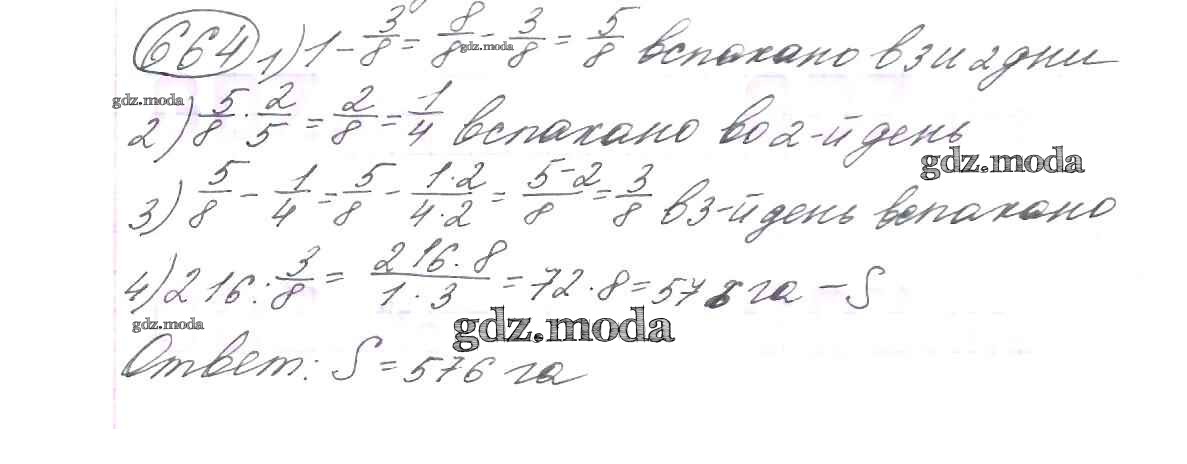 664 1) 1 - 3/8 = 8/8 - 3/8 = 5/8 вспахано в 3 и 2 дни
gdz.moda
gdz.moda
2) 5/8 · 2/5 = 2/8 = 1/4 вспахано во 2-й день
gdz.moda
3) 5/8 - 1/4 = 5/8 - 1·2/4·2 = 5-2/8 = 3/8 в 3-й день вспахано
4) 216 : 3/8 = 216·8/1·3 = 72·8 = 576 га - S
gdz.moda
gdz.moda
Ответ: S = 576 га